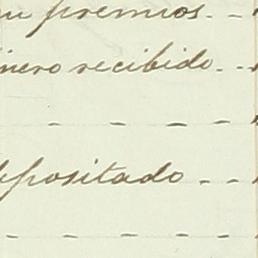 premios. - -
nero recibido. - -
- - - -
depositado - -
- - - - -